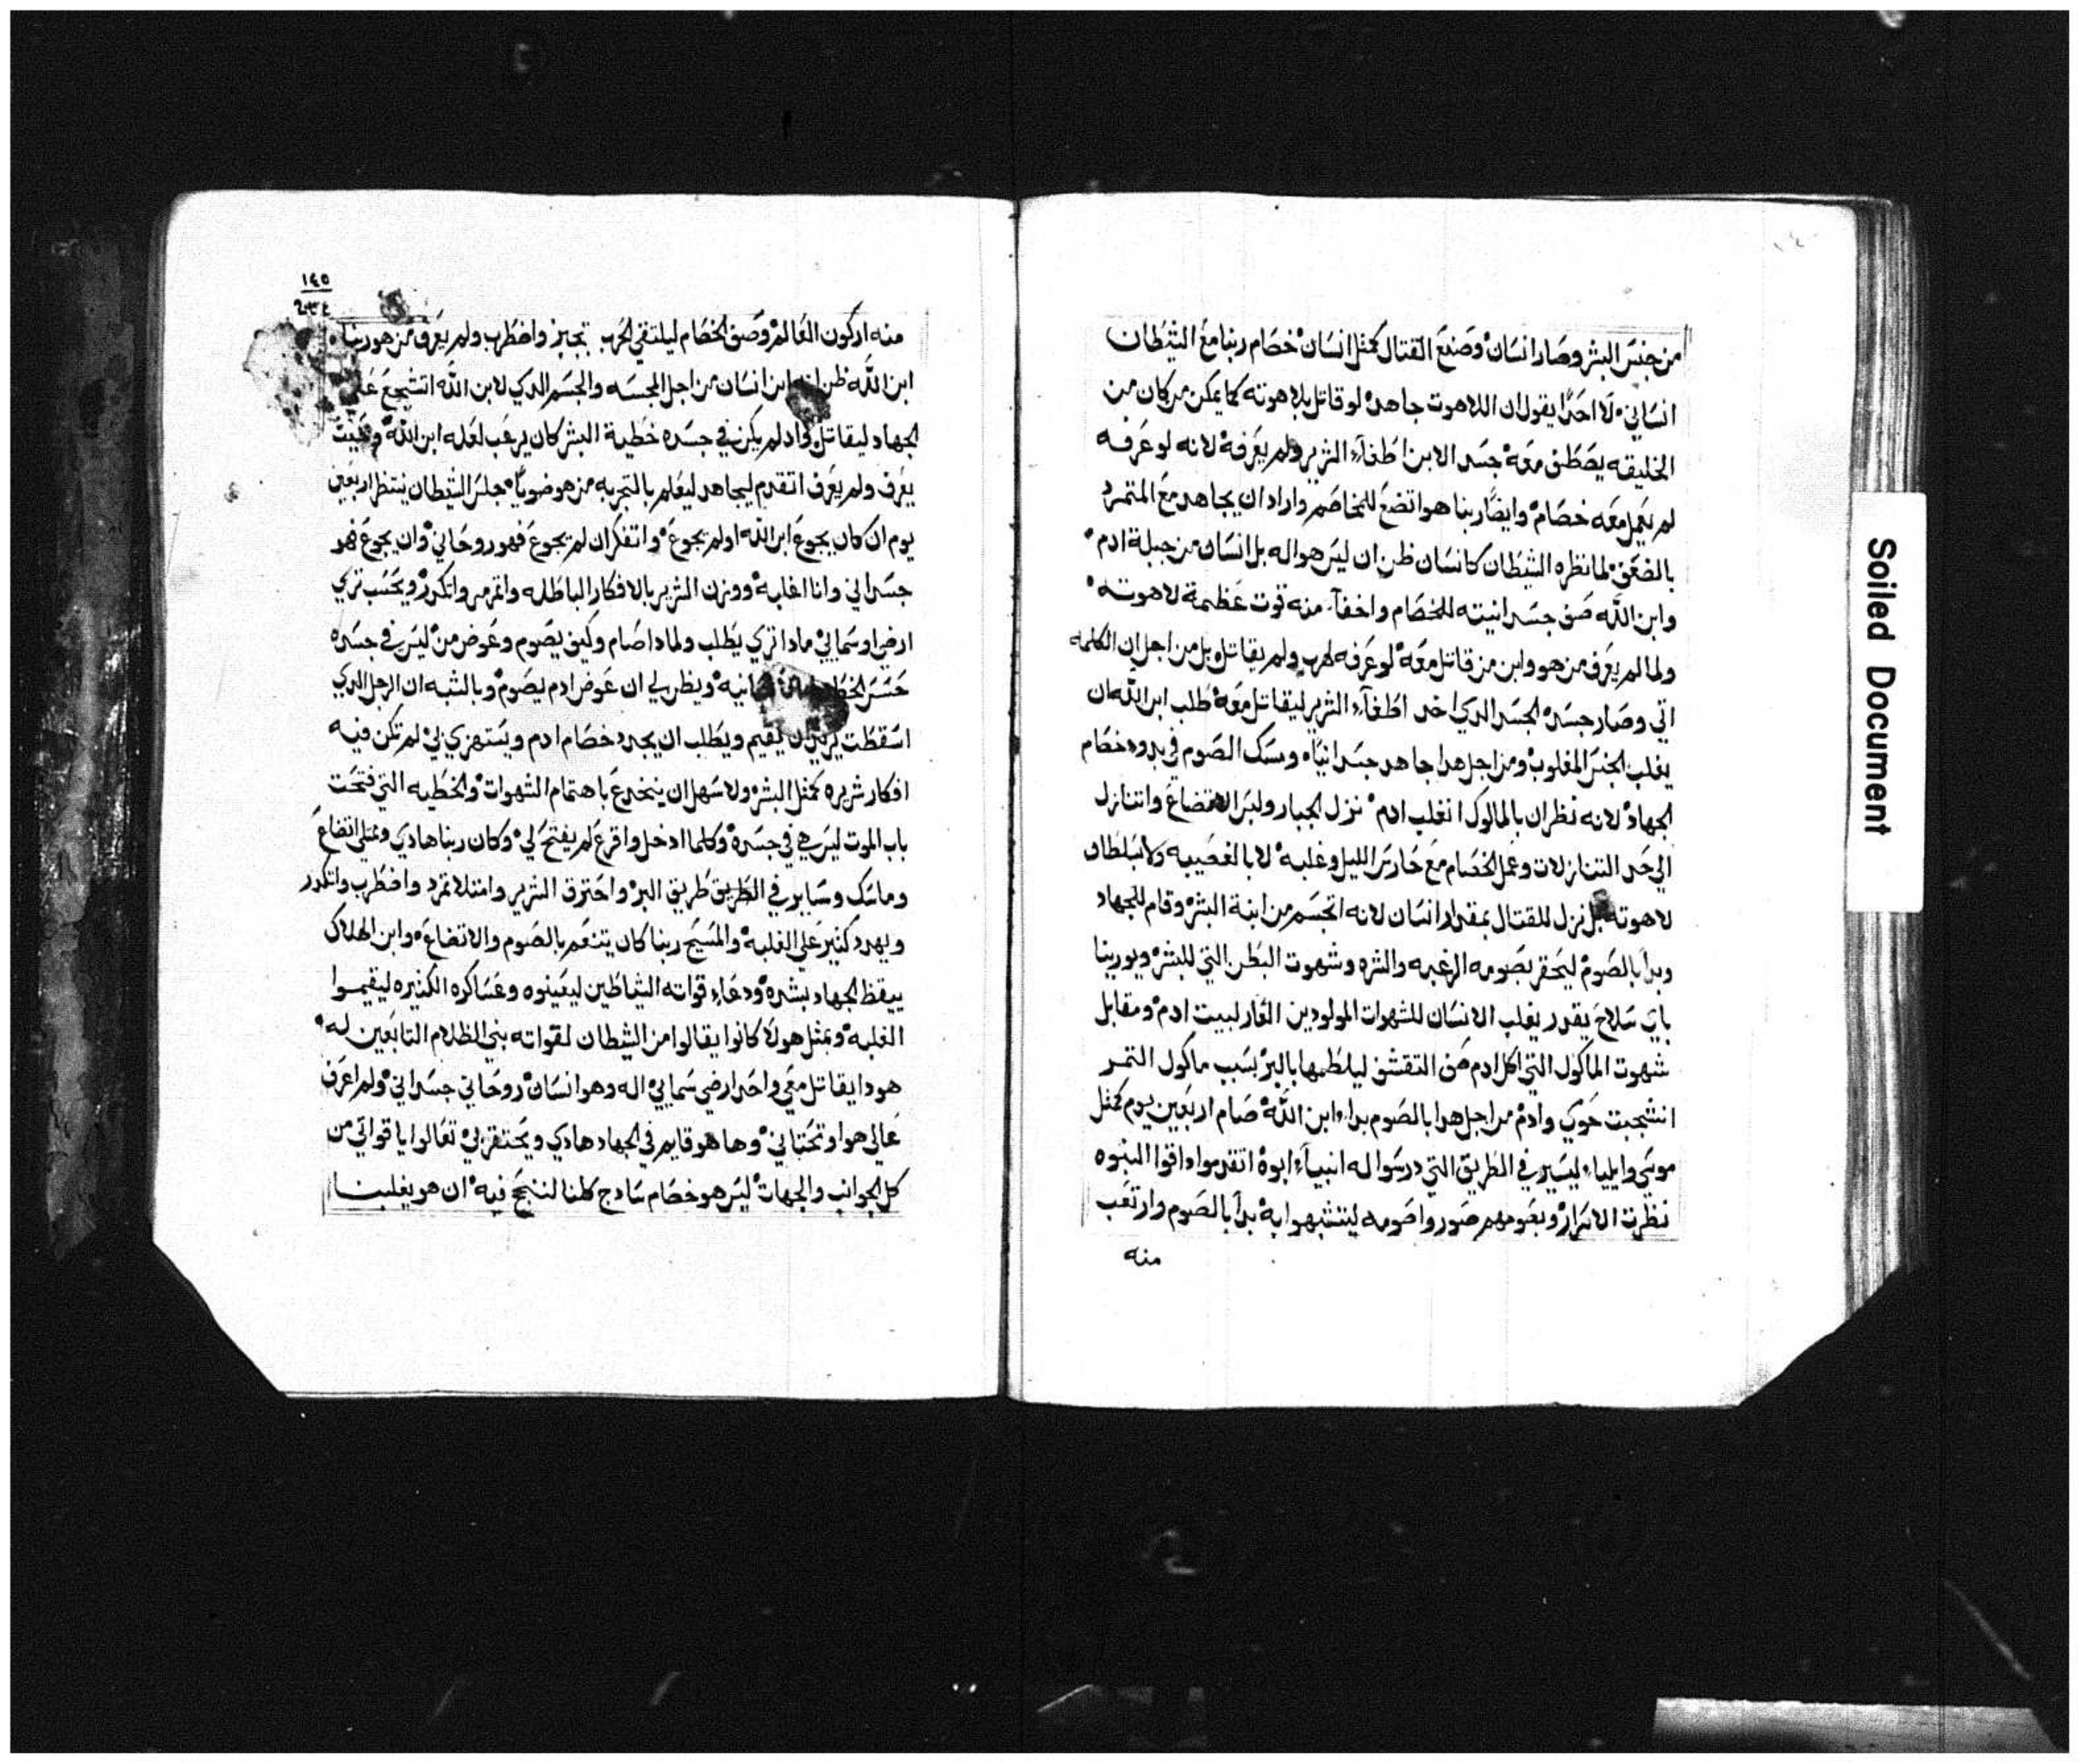 من جنس البشر وصار انسان وصنع القتال كمثل انسان خصام ربنا مع الشيطان
انساني لا احدًا يقول ان اللاهوت جاهد لو قاتل بلاهوته كما يمكن من كان من
الخليقه يصطف معه جسد الابن اطغاء الشرير ولم يعرفه لانه لو عرفه
لم يعمل معه خصام وايضًا ربنا هو اتضع للمخاصم واراد ان يجاهد مع المتمرد
بالضعف لما نظره الشيطان كانسان ظن ان ليس هو اله بل انسان من جبلة ادم
وابن الله صف جسدانيته للخصام واخفا منه قوت عظمة لاهوته
ولما لم يعرف من هو وابن من قاتل معه لو عرفه لهرب ولم يقاتل بل من اجل ان الكلمه
اتي وصار جسد الجسد الدي اخد اطغاء الشرير ليقاتل معه طلب ابن الله ان
يغلب الجنس المغلوب ومن اجل هدا جاهد جسدانيًا ومسك الصوم في بدوء خصام
الجهاد لانه نظر ان بالمالوك انغلب ادم نزل الجبار ولبس الاتضاع واتنازل
الي حد التنازلات وعمل الخصام مع حارس الليل وغلبه لا بالغصيبه ولا بسلطان
لاهوته بل نزل للقتال بمقدار انسان لانه اتجسم من ابنة البشر وقام للجهاد
وبدا بالصوم ليحقر بصومه الرغبه والشره وشهوت البطن التي للبشر ويورينا
باي سلاح يقدر يغلب الانسان للشهوات المولودين العار لبيت ادم ومقابل
شهوت الماكول التي اكل ادم صف التقشف ليلطمها بالبر بسبب ماكول التمر
انشجبت حوي وادم من اجل هدا بالصوم بداء ابن الله صام اربعين يوم كمثل
موسي وايلياء ليسير في الطريق التي درسوا له انبياء ابوه اتقدموا داقوا النبوه
نظرت الاسرار وبصومهم صوروا صومه ليتشبهوا به بدا بالصوم وارتعب
منه
١٤٥
منه اركون العالم وصف الخصام ليلتقي الحرب تجبز واضطرب ولم يعرف من هو ربنا
ابن الله ظن انه ابن انسان من اجل المجسه والجسم الدي لابن الله اتشجع علي
الجهاد ليقاتل واد لم يكن في جسده خطية البشر كان يرعب لعله ابن الله
يعرف ولم يعرف اتقدم ليجاهد ليعلم بالتجربه من هو ضويًا جلس الشيطان ينتظر اربعين
يوم ان كان يجوع ابن الله او لم يجوع واتفكر ان لم يجوع فهو روحاني وان يجوع فهو
جسداني وانا اغلبه ووزن الشرير بالافكار الباطله واتمرمر واتكدر ويحسب تري
ارضي او سمايي مادا تري يطلب ولمادا صام وكيف يصوم وعوض من ليس في جسده
ويظن لي ان عوض ادم يصوم وبالشبه ان الرجل الدي
اسقطت يقيم ويطلب ان يجدد خصام ادم ويستهزي بي لم تكن فيه
افكار شريره كمثل البشر ولا سهل ان ينخدع باهتمام الشهوات والخطيه التي فتحت
باب الموت ليس هي في جسده وكلما ادخل واقرع لم يفتح لي وكان ربنا هادي وممتلي اتضاع
وماسك وساير في الطريق طريق البر واحترق الشرير وامتلا تمرد واضطرب واتكدر
ويهدد كثير علي الغلبه والمسيح ربنا كان يتنعم بالصوم والاتضاع وابن الهلاك
ييقظ الجهاد بشره ودعاء قواته الشياطين ليعينوه وعساكره الكثيره ليقيموا
الغلبه وبمثل هولا كانوا يقالوا من الشيطان لقواته بني الظلام التابعين له
هودا يقاتل معي واحد ارضي سمايي اله وهو انسان روحاني جسداني ولم اعرف
عالي هو او تحتاني وها هو قايم في الجهاد هادي ويحتقر بي تعالوا يا قواتي من
كل الجوانب والجهات ليس هو خصام سادج كلنا لننجح فيه ان هو يغلبنا
Soiled Document